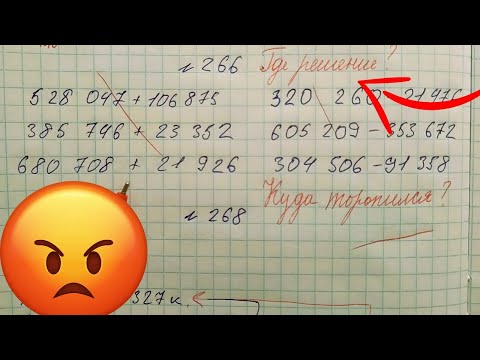 № 266 Где решение?
528 047 + 106 875 320 260 - 21 976
385 746 + 23 352 605 209 - 353 672
680 708 + 21 926 304 506 - 91 358
Куда торопился?
№ 268
327 к.